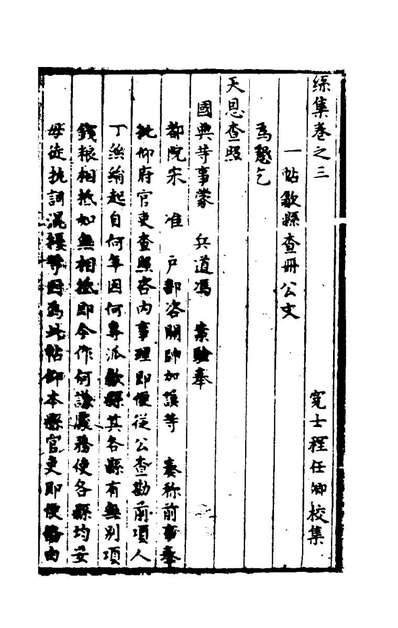 絲集卷之三
寃士程任卿校集
一帖歙縣查冊公文
為懇乞
天恩查照
國典等事蒙 兵道馮 案驗奉
都院宋 准 戶部咨開帥加謨等 奏称前事奉
批仰府官吏查照咨內事理即便従公查勘前項人
丁絲絹起自何年因何專派歙縣其各縣有無別項
錢粮相抵如無相抵即今作何議處務使各縣均妥
毋徒執詞混擾等因為此帖仰本縣官吏即便備由